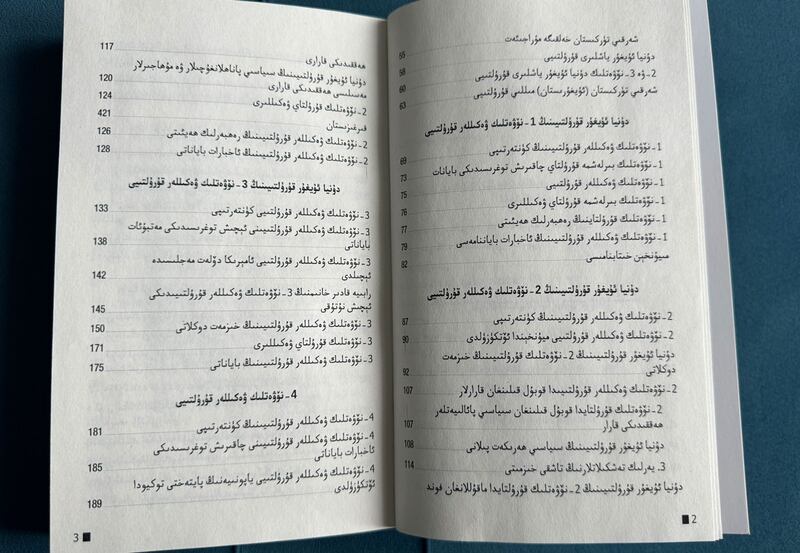 شەرقىي تۈركىستان خەلقىگە مۇراجىئەت
55
دۇنيا ئۇيغۇر ياشلىرى قۇرۇلتىيى
58
2-ۋە 3-نۆۋەتلىك دۇنيا ئۇيغۇر ياشلىرى قۇرۇلتىيى
60
شەرقىي تۈركىستان (ئۇيغۇرىستان) مىللىي قۇرۇلتىيى
63
دۇنيا ئۇيغۇر قۇرۇلتىيىنىڭ 1-نۆۋەتلىك ۋەكىللەر قۇرۇلتىيى
1-نۆۋەتلىك ۋەكىللەر قۇرۇلتىيىنىڭ كۈنتەرتىپى
69
1-نۆۋەتلىك بىرلەشمە قۇرۇلتاي چاقىرىش توغرىسىدىكى بايانات
73
1-نۆۋەتلىك ۋەكىللەر قۇرۇلتىيى
75
1-نۆۋەتلىك بىرلەشمە قۇرۇلتاي ۋەكىللىرى
76
1-نۆۋەتلىك قۇرۇلتاينىڭ رەھبەرلىك ھەيئىتى
77
1-نۆۋەتلىك ۋەكىللەر قۇرۇلتىيىنىڭ ئاخبارات باياننامەسى
79
ميۇنخېن خىتابنامىسى
82
دۇنيا ئۇيغۇر قۇرۇلتىيىنىڭ 2-نۆۋەتلىك ۋەكىللەر قۇرۇلتىيى
2-نۆۋەتلىك ۋەكىللەر قۇرۇلتىيىنىڭ كۈنتەرتىپى
87
2-نۆۋەتلىك ۋەكىللەر قۇرۇلتىيى ميۇنخېندا ئۆتكۈزۈلدى
90
دۇنيا ئۇيغۇر قۇرۇلتىيىنىڭ 2-نۆۋەتلىك قۇرۇلتىيىنىڭ خىزمەت
دوكلاتى
92
2-نۆۋەتلىك ۋەكىللەر قۇرۇلتىيىدا قوبۇل قىلىنغان قارارلار
107
2-نۆۋەتلىك قۇرۇلتايدا قوبۇل قىلىنغان سىياسىي پائالىيەتلەر
ھەققىدىكى قارار
107
دۇنيا ئۇيغۇر قۇرۇلتىيىنىڭ سىياسىي ھەرىكەت پىلانى
108
3. يەرلىك تەشكىلاتلارنىڭ تاشقى خىزمىتى
114
دۇنيا ئۇيغۇر قۇرۇلتىيىنىڭ 2-نۆۋەتلىك قۇرۇلتايدا ماقۇللانغان فوند
2
ھەققىدىكى قارارى
117
دۇنيا ئۇيغۇر قۇرۇلتىيىنىڭ سىياسىي پاناھلانغۇچىلار ۋە مۇھاجىرلار
مەسىلىسى ھەققىدىكى قارارى
120
2-نۆۋەتلىك قۇرۇلتاي ۋەكىللىرى
124
قىرغىزىستان
421
2-نۆۋەتلىك ۋەكىللەر قۇرۇلتىيىنىڭ رەھبەرلىك ھەيئىتى
126
2-نۆۋەتلىك ۋەكىللەر قۇرۇلتىيىنىڭ ئاخبارات باياناتى
128
دۇنيا ئۇيغۇر قۇرۇلتىيىنىڭ 3-نۆۋەتلىك ۋەكىللەر قۇرۇلتىيى
3-نۆۋەتلىك ۋەكىللەر قۇرۇلتىيى كۈنتەرتىپى
133
3-نۆۋەتلىك ۋەكىللەر قۇرۇلتىيىنى ئېچىش توغرىسىدىكى مەتبۇئات
باياناتى
138
3-نۆۋەتلىك ۋەكىللەر قۇرۇلتىيى ئامېرىكا دۆلەت مەجلىسىدە
ئېچىلدى
142
رابىيە قادىر خانىمنىڭ 3-نۆۋەتلىك ۋەكىللەر قۇرۇلتىيىدىكى
ئېچىش نۇتۇقى
145
3-نۆۋەتلىك ۋەكىللەر قۇرۇلتىيىنىڭ خىزمەت دوكلاتى
150
3-نۆۋەتلىك قۇرۇلتاي ۋەكىللىرى
171
3-نۆۋەتلىك ۋەكىللەر قۇرۇلتىيىنىڭ باياناتى
175
4-نۆۋەتلىك ۋەكىللەر قۇرۇلتىيى
4-نۆۋەتلىك ۋەكىللەر قۇرۇلتىيىنىڭ كۈنتەرتىپى
181
4-نۆۋەتلىك ۋەكىللەر قۇرۇلتىيىنى چاقىرىش توغرىسىدىكى
ئاخبارات باياناتى
185
4-نۆۋەتلىك ۋەكىللەر قۇرۇلتىيى ياپونىيەنىڭ پايتەختى توكيودا
ئۆتكۈزۈلدى
189
3